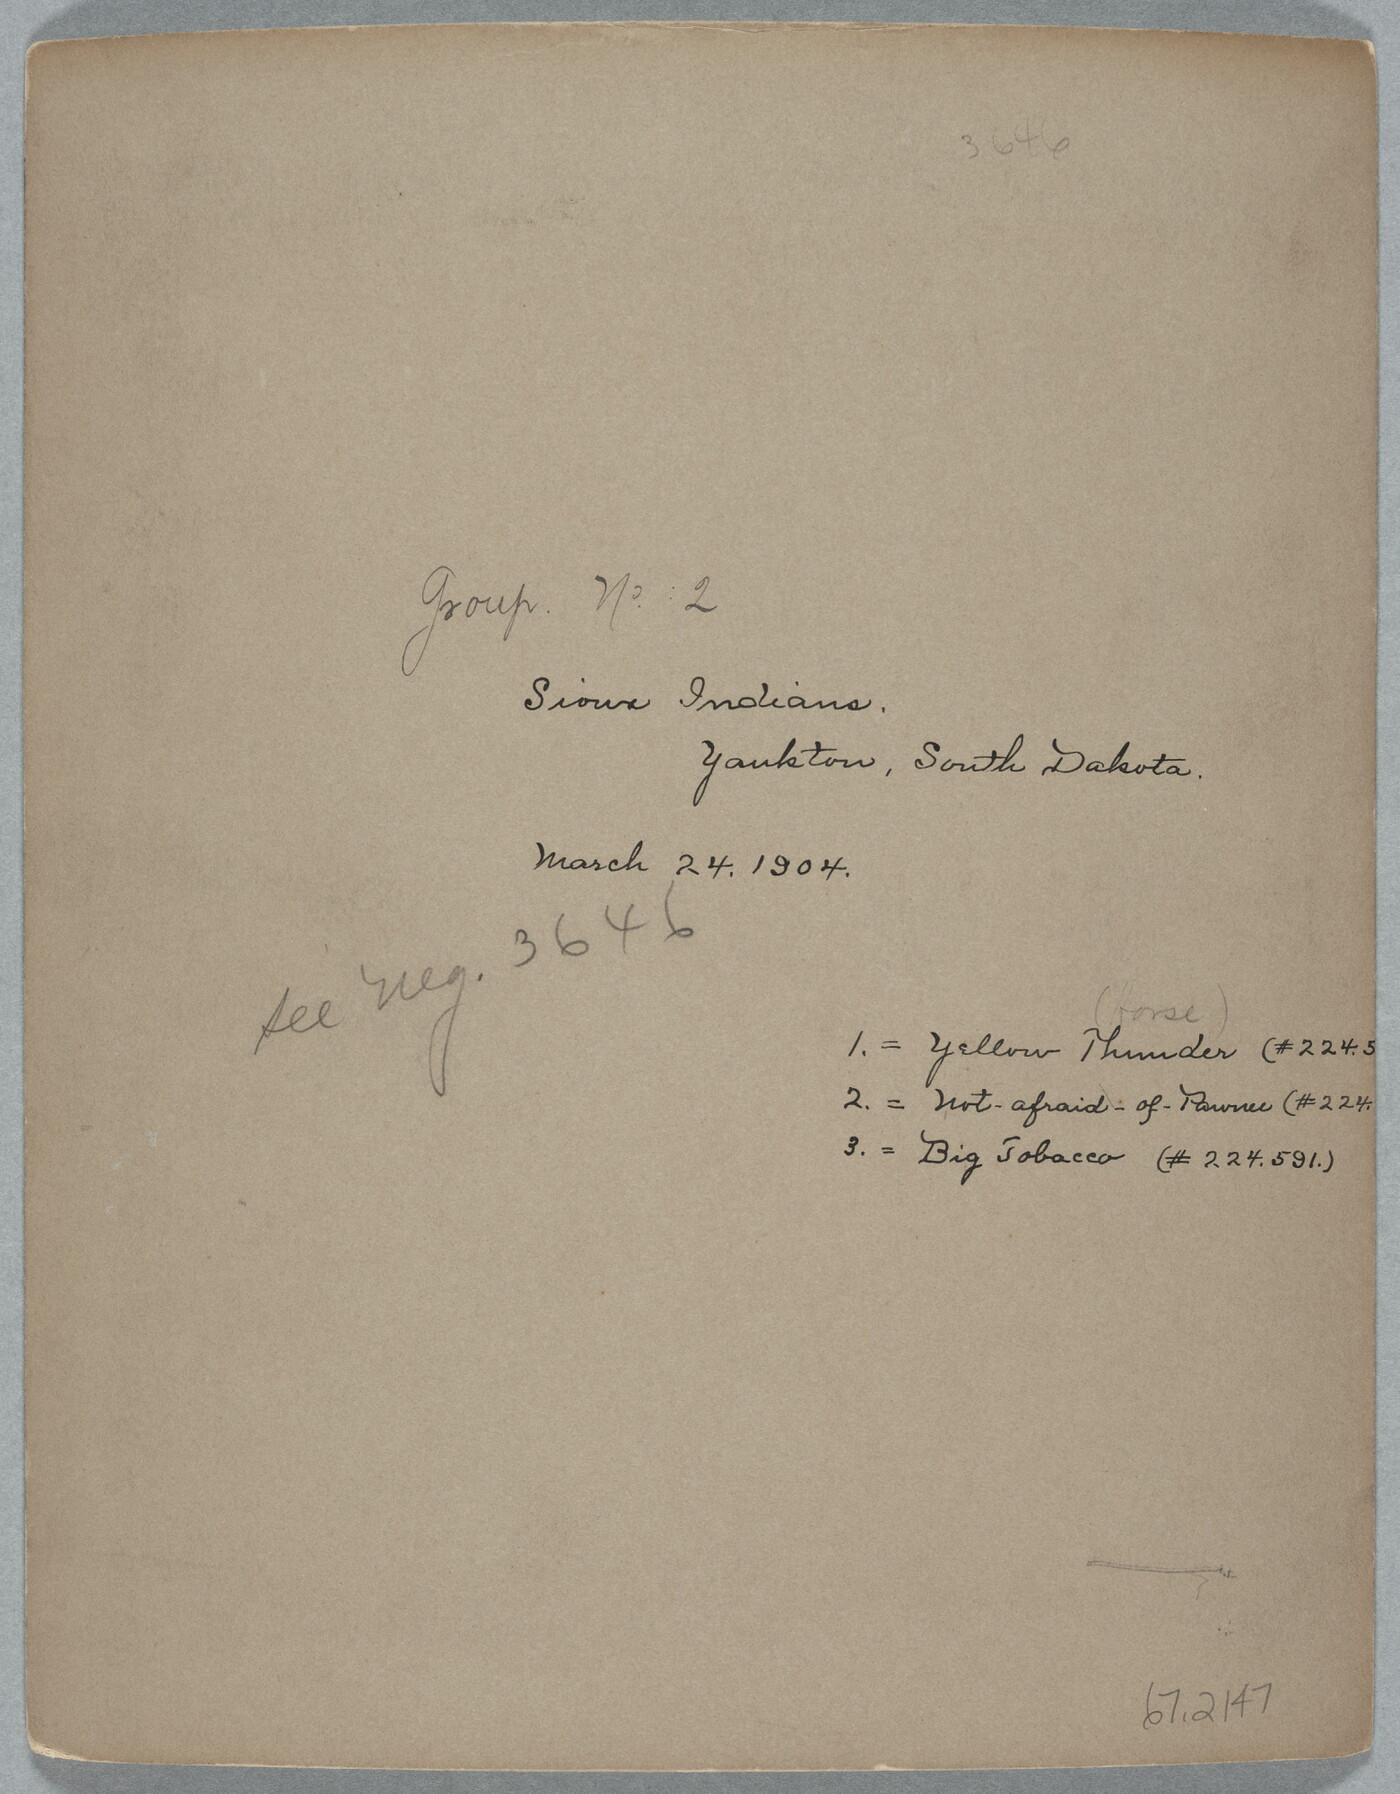 3646
Group. No. 2
Sioux Indians.
Yankton, South Dakota.
March 24. 1904.
see Neg. 3646
(Horse)
1. = Yellow Thunder (#224.5
2. = Not-afraid-of-Pawnee (#224.
3. = Big Tobacco (# 224.591.)
67.2147